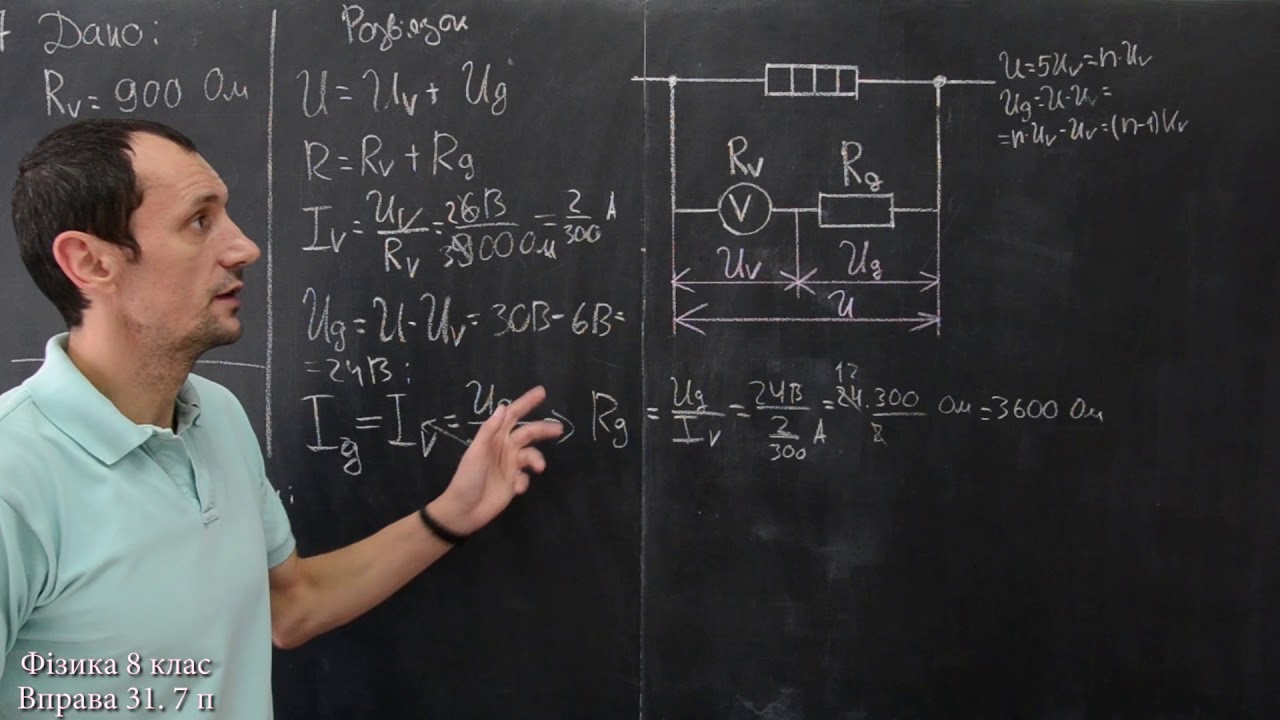 7 Дано:
Rv = 900 Ом
Розв'язок
U = Uv + Ug
R = Rv + Rg
Iv = Uv/Rv = 26В/3900 Ом = 2/300 А
Ug = U - Uv = 30В - 6В =
= 24В;
Ig = Iv = Rg = Ug/Iv = 24В / 2/300 А = 12 24 · 300/2 Ом = 3600 Ом
U = 5Uv = n · Uv
Ug = U - Uv =
= n · Uv - Uv = (n-1)Uv
Rv
Rg
V
Uv
Ug
U
Фізика 8 клас
Вправа 31. 7 п